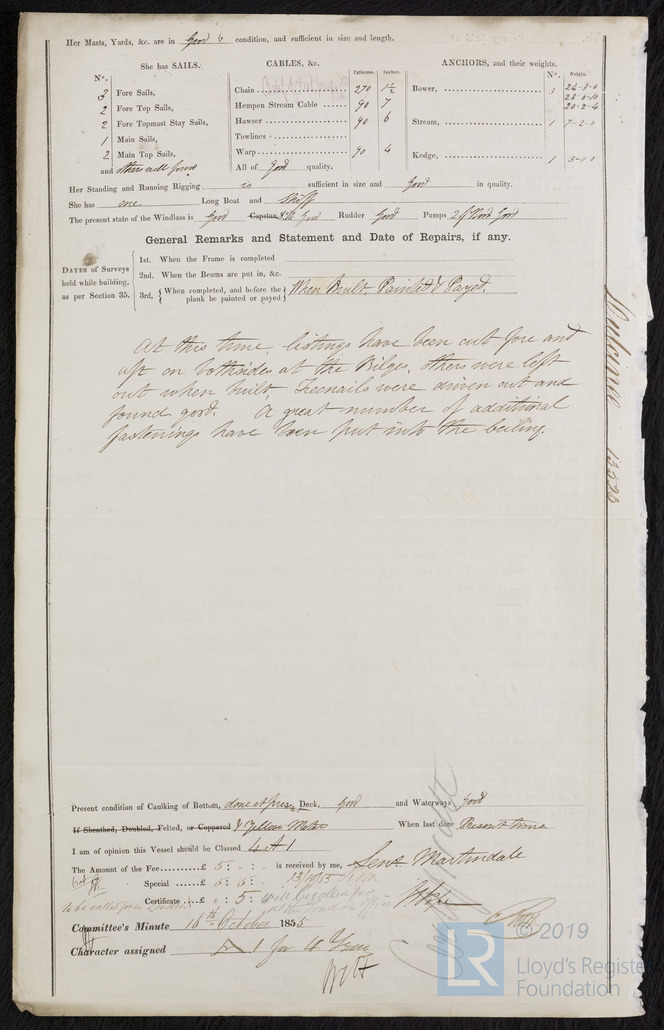 Her Masts, Yards, &c. are in Good condition, and sufficient in size and length.
She has SAILS.
CABLES, &c.
ANCHORS, and their weights.
N°.
Fathoms. Inches.
N°. Weight.
3 Fore Sails,
2 Fore Top Sails,
2 Fore Topmast Stay Sails,
1 Main Sails,
2 Main Top Sails,
and others well found
Chain 270 1 1/2
Hempen Stream Cable 90 7
Hawser 90 6
Towlines
Warp 90 4
All of Good quality.
Bower, 3 24-3-0
23-0-10
20-2-4
Stream, 1 7-2-0
Kedge, 1 3-0-0
Her Standing and Running Rigging is sufficient in size and Good in quality.
She has one Long Boat and Skiff
The present state of the Windlass is Good Capstan Good Rudder Good Pumps 2 of Good
General Remarks and Statement and Date of Repairs, if any.
DATES of Surveys held while building, as per Section 35.
1st. When the Frame is completed
2nd. When the Beams are put in, &c.
3rd, { When completed, and before the plank be painted or payed } When Built, Painted & Payed.
At this time, listings have been cut fore and
aft on bothsides at the Bilges, others were left
out when built, Treenails were driven out and
found good. A great number of additional
fastenings have been put into the ceiling.
Vulture 13523
Present condition of Caulking of Bottom, done at present Deck, Good and Waterways Good
If Sheathed, Doubled, Felted, or Coppered Yellow Metal When last done Present time
I am of opinion this Vessel should be Classed 4 A 1
The Amount of the Fee £ 5 : - : - is received by me, Martindale
Special £ 5 : 5 : - 13/10/55
Certificate £ - : 5 :
to be called for in London
Committee's Minute 16th October 1855
Character assigned A 1 for 4 Years
© 2019
LR
Lloyd's Register
Foundation